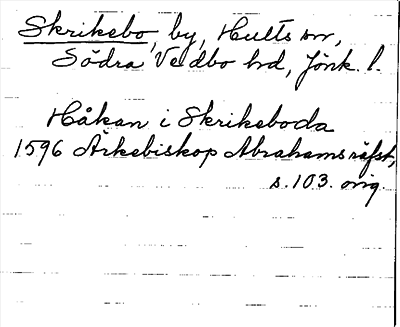 Skrikebo, by, Hults sn,
Södra Vedbo hd, Jönk. l.
Håkan i Skrikeboda
1596 Ärkebiskop Abrahams räfst,
s. 103. orig.